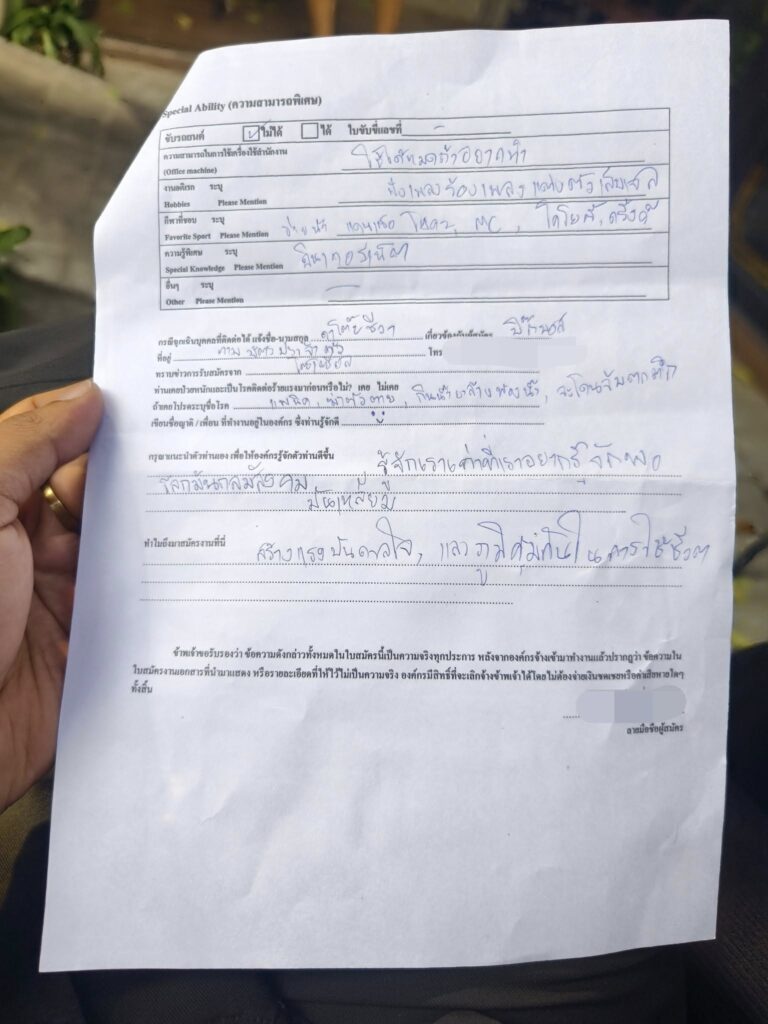 Special Ability (ความสามารถพิเศษ)
ขับรถยนต์ ไม่ได้ ได้ ใบขับขี่เลขที่ -
ความสามารถในการใช้เครื่องใช้สำนักงาน ใช้ได้หมดถ้าอยากทำ
(Office machine)
งานอดิเรก ระบุ ฟังเพลงร้องเพลง แต่งตัว
Hobbies Please Mention
กีฬาที่ชอบ ระบุ ว่ายน้ำ
Favorite Sport Please Mention
ความรู้พิเศษ ระบุ
Special Knowledge Please Mention
อื่นๆ ระบุ
Other Please Mention
กรณีฉุกเฉินบุคคลที่ติดต่อได้ แจ้งชื่อ-นามสกุล
ที่อยู่ ตามบัตรประจำตัว โทร
ทราบข่าวการรับสมัครจาก
ท่านเคยป่วยหนักและเป็นโรคติดต่อร้ายแรงมาก่อนหรือไม่? เคย ไม่เคย
ถ้าเคยโปรดระบุชื่อโรค แพนิค, ฆ่าตัวตาย, กินน้ำยาล้างห้องน้ำ, จะโดนจับตกตึก
เขียนชื่อญาติ / เพื่อน ที่ทำงานอยู่ในองค์กร ซึ่งท่านรู้จักดี
กรุณาแนะนำตัวท่านเอง เพื่อให้องค์กรรู้จักตัวท่านดีขึ้น รู้จักเราเท่าที่เราอยากรู้จักพอ
โลกมันกลมสังคม
มันเหลี่ยม
ทำไมถึงมาสมัครงานที่นี่ สร้างแรงบันดาลใจ, และภูมิคุ้มกันในการใช้ชีวิต
ข้าพเจ้าขอรับรองว่า ข้อความดังกล่าวทั้งหมดในใบสมัครนี้เป็นความจริงทุกประการ หลังจากองค์กรจ้างเข้ามาทำงานแล้วปรากฏว่า ข้อความใน
ใบสมัครงานเอกสารที่นำมาแสดง หรือรายละเอียดที่ให้ไว้ไม่เป็นความจริง องค์กรมีสิทธิ์ที่จะเลิกจ้างข้าพเจ้าได้โดยไม่ต้องจ่ายเงินชดเชยหรือค่าเสียหายใดๆ
ทั้งสิ้น
ลายมือชื่อผู้สมัคร